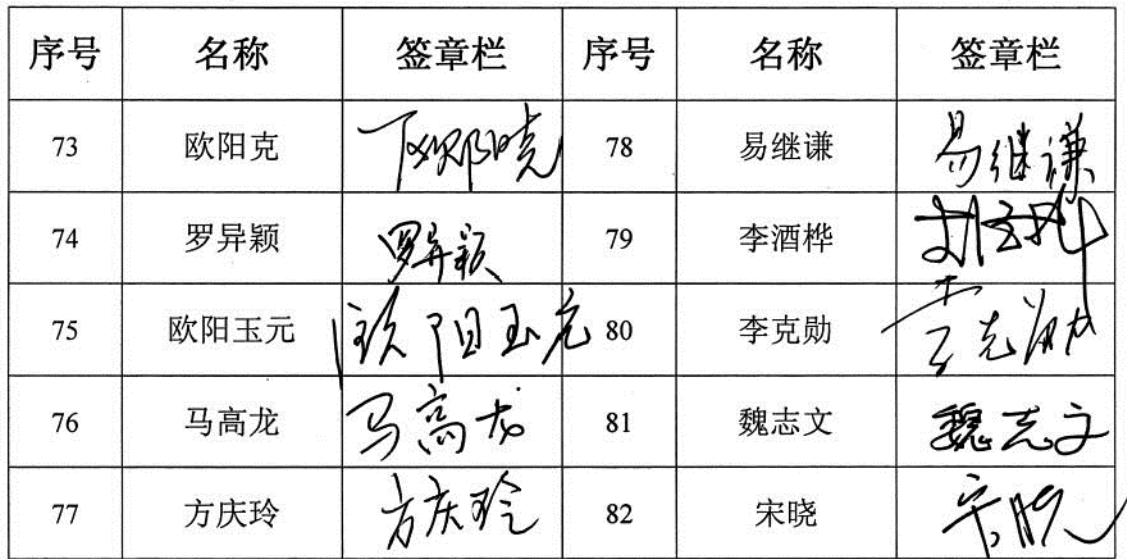 序号 名称 签章栏 序号 名称 签章栏
73 欧阳克 欧阳晓 78 易继谦 易继谦
74 罗异颖 罗异颖 79 李酒桦
75 欧阳玉元 欧阳玉元 80 李克勋 李克勋
76 马高龙 马高龙 81 魏志文 魏志文
77 方庆玲 方庆玲 82 宋晓 宋晓